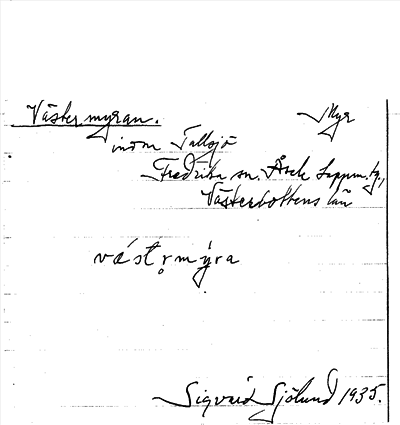 Västermyran. Myr
inom Tallsjö
Fredrika sn. Åsele Lappm. tg.,
Västerbottens län
västr̥mýra
Sigvard Sjölund 1935.